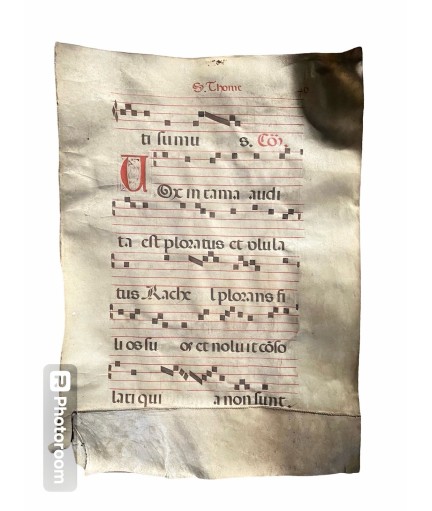 S. Thome
ti sumu s. Cõ.
VOx in rama audi
ta est ploratus et ulula
tus Rache l plorans fi
li os su os et noluit cõso
lari qui a non sunt.
Photoroom